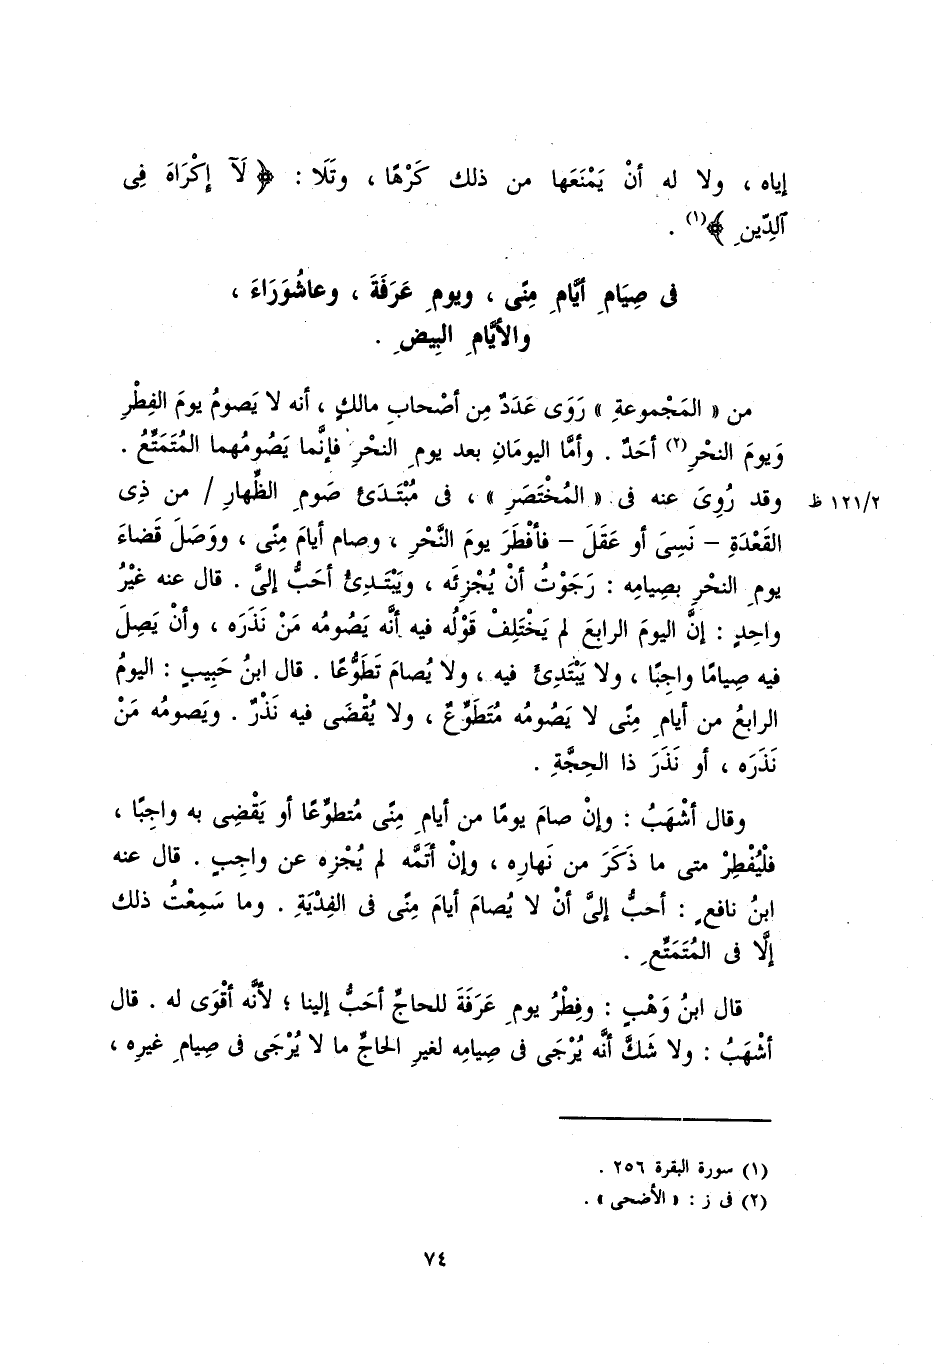 إياه ، ولا له أنْ يَمْنَعَها من ذلك كَرْهًا ، وتَلَا : ﴿ لَآ إِكْرَاهَ فِى
ٱلدِّينِ ﴾(١) .
فى صِيَامِ أيَّامِ مِنًى ، ويومِ عَرَفَةَ ، وعاشُورَاءَ ،
والأيَّامِ البِيضِ .
من « المَجْموعةِ » رَوَى عَدَدٌ مِن أصْحابِ مالكٍ ، أنه لا يَصومُ يومَ الفِطْرِ
وَيومَ النحْرِ(٢) أحَدٌ . وأمَّا اليومَانِ بعد يومِ النحْرِ فإنَّما يَصُومُهما المُتَمَتِّعُ .
وقد رُوِىَ عنه فى « المُخْتَصَرِ » ، فى مُبْتَدَئ صَومِ الظِّهارِ / من ذِى ١٢١/٢ ظ
القَعْدَةِ – نَسِىَ أو غَفَلَ – فأفْطَرَ يومَ النَّحْرِ ، وصام أيامَ مِنًى ، ووَصَلَ قَضاءَ
يومِ النحْرِ بصِيامِه : رَجَوْتُ أنْ يُجْزِئَه ، ويَبْتَدِئُ أحَبُّ إلىَّ . قال عنه غيْرُ
واحِدٍ : إنَّ اليومَ الرابعَ لم يَخْتَلِفْ قَوْلُه فيه أنَّه يَصُومُه مَنْ نَذَرَه ، وأنْ يَصِلَ
فيه صِيامًا واجِبًا ، ولا يَبْتَدِئَ فيه ، ولا يُصامَ تَطَوُّعًا . قال ابنُ حَبِيبٍ : اليومُ
الرابعُ من أيامِ مِنًى لا يَصُومُه مُتَطَوِّعٌ ، ولا يُقْضَى فيه نَذْرٌ . ويَصومُه مَنْ
نَذَرَه ، أو نَذَرَ ذا الحِجَّةِ .
وقال أشْهَبُ : وإنْ صامَ يومًا من أيامِ مِنًى مُتطوِّعًا أو يَقْضِى به واجِبًا ،
فلْيُفْطِرْ متى ما ذَكَرَ من نَهارِه ، وإنْ أتَمَّه لم يُجْزِه عن واجِبٍ . قال عنه
ابنُ نافعٍ : أحبُّ إلىَّ أنْ لا يُصامَ أيامَ مِنًى فى الفِدْيَةِ . وما سَمِعْتُ ذلك
إلَّا فى المُتَمَتِّعِ .
قال ابنُ وَهْبٍ : وفِطْرُ يومِ عَرَفَةَ للحاجِّ أحَبُّ إلينا ؛ لأنَّه أقْوَى له . قال
أشْهَبُ : ولا شَكَّ أنَّه يُرْجَى فى صِيامِه لغيرِ الحاجِّ ما لا يُرْجَى فى صِيامِ غيرِه ،
(١) سورة البقرة ٢٥٦ .
(٢) فى ز : « الأضحى » .
٧٤